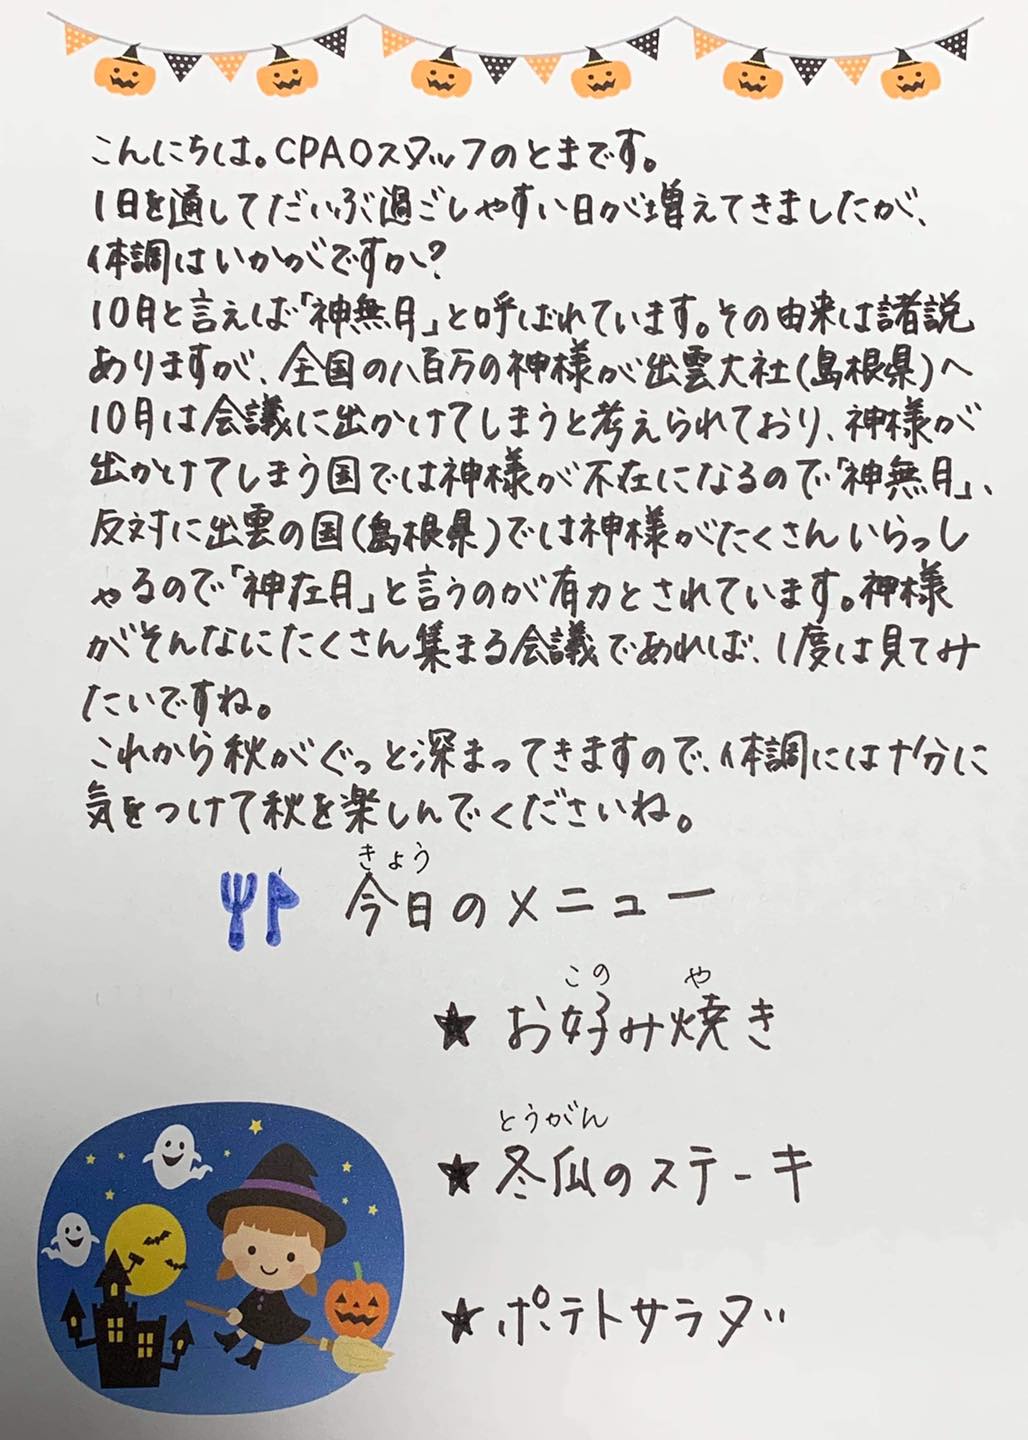 こんにちは。CPAOスタッフのとまです。
1日を通してだいぶ過ごしやすい日が増えてきましたが、
体調はいかがですか？
10月と言えば「神無月」と呼ばれています。その由来は諸説
ありますが、全国の八百万の神様が出雲大社(島根県)へ
10月は会議に出かけてしまうと考えられており、神様が
出かけてしまう国では神様が不在になるので「神無月」、
反対に出雲の国(島根県)では神様がたくさんいらっし
ゃるので「神在月」と言うのが有力とされています。神様
がそんなにたくさん集まる会議であれば、1度は見てみ
たいですね。
これから秋がぐっと深まってきますので、体調には十分に
気をつけて秋を楽しんでくださいね。
きょう
今日のメニュー
この や
★ お好み焼き
とうがん
★ 冬瓜のステーキ
★ ポテトサラダ